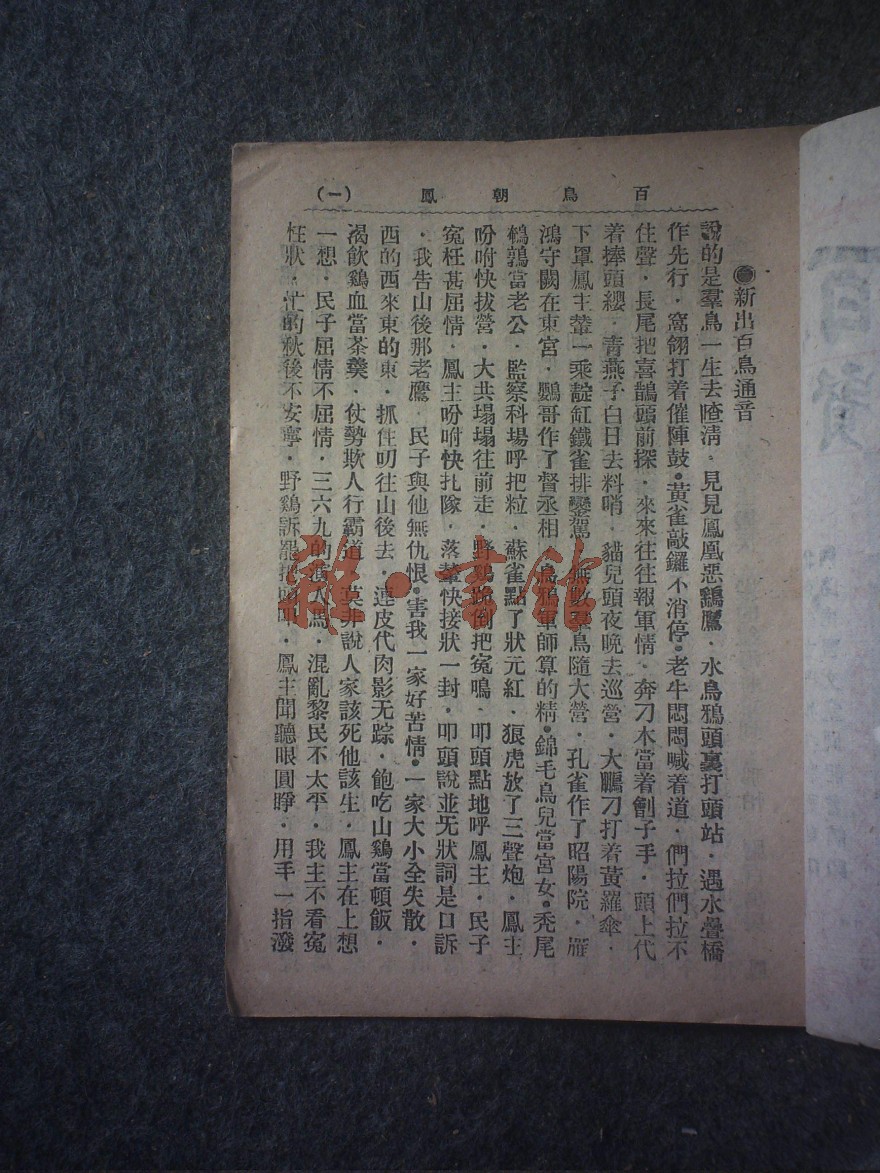 百鳥朝鳳 (一)
●新出百鳥通音
說的是羣鳥一生去喳清．見見鳳凰惡鷂鷹．水鳥鴉頭裏打頭站．遇水疊橋
作先行．窩翎打着催陣鼓●黃雀敲鑼不消停●老牛悶悶喊着道．們拉們拉不
住聲．長尾把喜鵲頭前探．來來往往報軍情．奔刀木當着劊子手．頭上代
着捧頭纓．青燕子白日去料哨．貓兒頭夜晚去巡營．大鵬刁打着黃羅傘．
下罩鳳主輦一乘靛缸鐵雀排鑾駕．無數羣鳥隨大營．孔雀作了昭陽院．雁
鴻守闕在東宮．鸚哥作了督丞相．烏鴉軍師算的精●錦毛鳥兒當宮女●禿尾
鵪鶉富老公．監察科場呼把粒．蘇雀點了狀元紅．狼虎放了三聲炮．鳳主
吩咐快拔營．大共塌塌往前走．野鷄跪倒把寃鳴．叩頭點地呼鳳主．民子
寃枉甚屈情．鳳主吩咐快扎隊．落輦快接狀一封．叩頭說並无狀詞是口訴
．我告山後那老鷹．民子與他無仇恨●害我一家好苦情●一家大小全失散．
西的西來東的東．抓住叨往山後去．連皮代肉影无踪．飽吃山鷄當頓飯．
渴飲鷄血當茶羹．仗勢欺人行霸道．莫非說人家該死他該生．鳳主在上想
一想．民子屈情不屈情．三六九的演人馬．混亂黎民不太平．我主不看寃
枉狀．茫的秋後不安寧．野鷄訴罷把．鳳主聞聽眼圓睜．用手一指潑
雜·書館